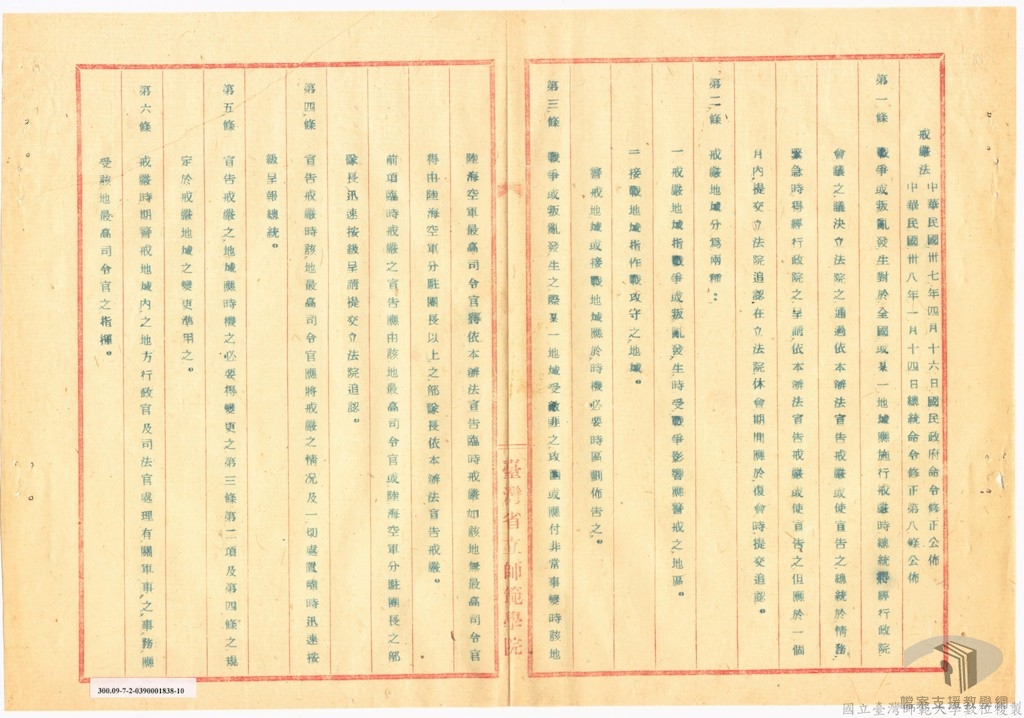 戒嚴法
中華民國卅七年四月十六日國民政府命令修正公佈
中華民國卅八年一月十四日總統命令修正第八條公佈
第一條 戰爭或叛亂發生對於全國或某一地域應施行戒嚴時總統得經行政院
會議之議決立法院之通過依本辦法宣告戒嚴或使宣告之總統於情務
緊急時得經行政院之呈請依本辦法宣告戒嚴或使宣告之但應於一個
月內提交立法院追認在立法院休會期間應於復會時提交追認。
第二條 戒嚴地域分爲兩種：
一戒嚴地域指戰爭或叛亂發生時受戰爭影響應警戒之地區。
二接戰地域指作戰攻守之地域。
警戒地域或接戰地域應於時機必要時區劃佈告之。
第三條 戰爭或叛亂發生之際某一地域受敵匪之攻圍或應付非常事變時該地
陸海空軍最高司令官得依本辦法宣告臨時戒嚴如該地無最高司令官
得由陸海空軍分駐團長以上之部隊長依本辦法宣告戒嚴。
前項臨時戒嚴之宣告應由該地最高司令官或陸海空軍分駐團長之部
隊長迅速按級呈請提交立法院追認。
第四條 宣告戒嚴時該地最高司令官應將戒嚴之情况及一切處置隨時迅速按
級呈報總統。
第五條 宣告戒嚴之地域應時機之必要得變更之第三條第二項及第四條之規
定於戒嚴地域之變更準用之。
第六條 戒嚴時期警戒地域內之地方行政官及司法官處理有關軍事之事務應
受該地最高司令官之指揮。
臺灣省立師範學院
300.09-7-2-0390001838-10
檔案支援教學網
國立臺灣師範大學數位複製